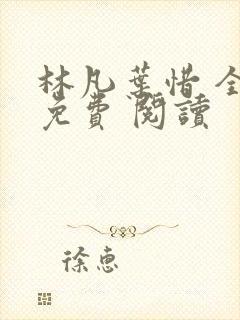 林凡葉惜全
免費閱讀
徐惠